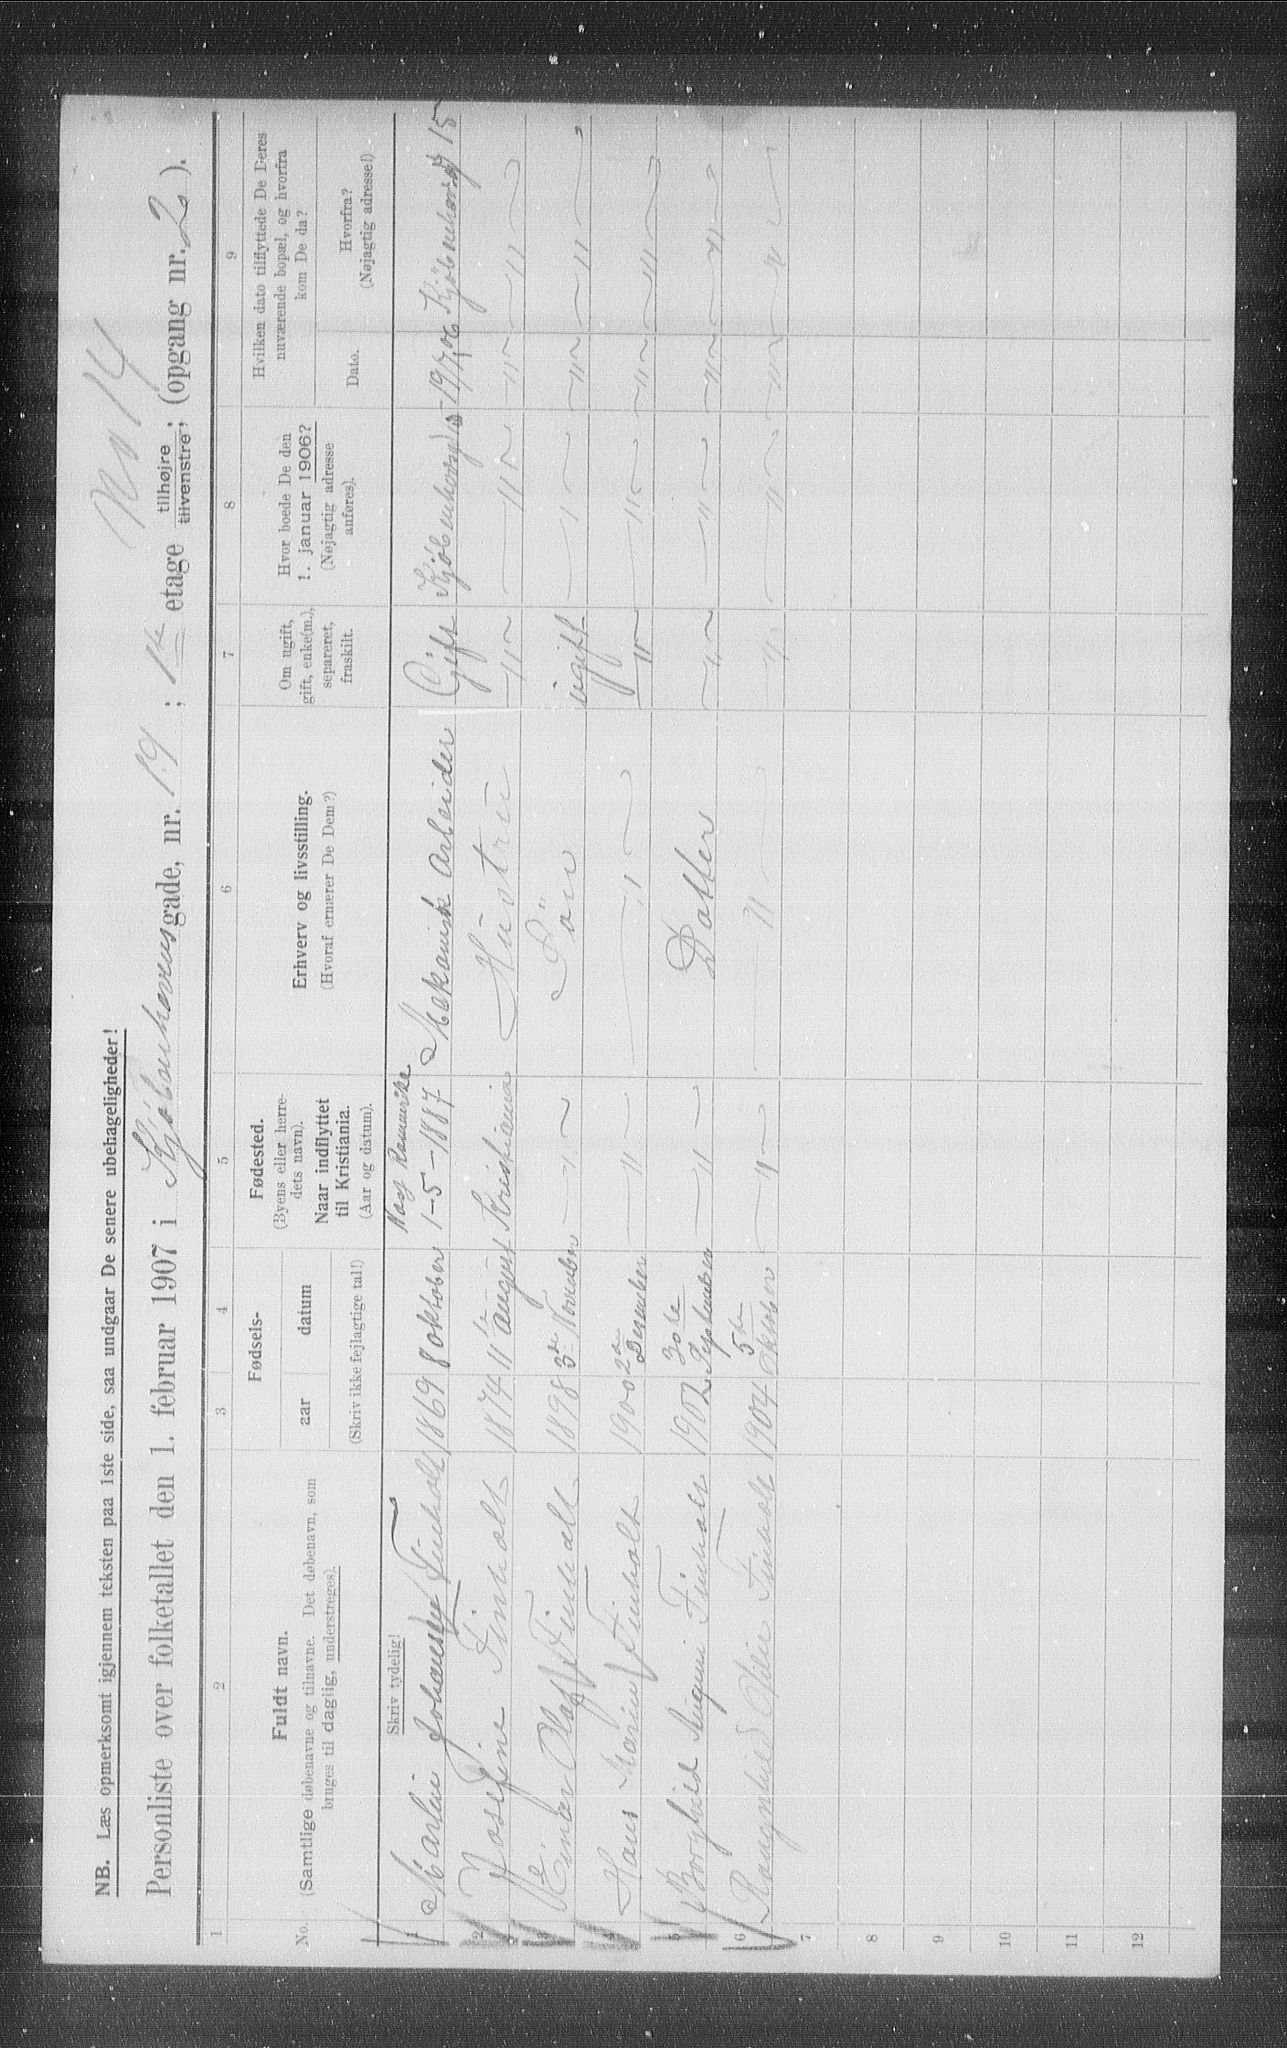 No 14
NB. Læs opmerksomt igjennem teksten paa 1ste side, saa undgaar De senere ubehageligheder!
Personliste over folketallet den 1. februar 1907 i Kjøbenhavnsgade, nr. 19 ; 1ste etage tilhøjre tilvenstre ; (opgang nr. 2 ).
1 2 3 4 5 6 7 8 9
No.
Fuldt navn.
(Samtlige døbenavne og tilnavne. Det døbenavn, som
bruges til daglig, understreges).
Skriv tydelig!
Fødsels-
aar datum
(Skriv ikke fejlagtige tal!)
Fødested.
(Byens eller herre-
dets navn).
Naar indflyttet
til Kristiania.
(Aar og datum).
Erhverv og livsstilling.
(Hvoraf ernærer De Dem?)
Om ugift,
gift, enke(m.),
separeret,
fraskilt.
Hvor boede De den
1. januar 1906?
(Nøjagtig adresse
anføres).
Hvilken dato tilflyttede De Deres
nuværende bopæl, og hvorfra
kom De da?
Dato.
Hvorfra?
(Nøjagtig adresse!)
1 Martin Johansen Finholt 1869 8 Oktober Næs Romerike 1-5-1887 Mekanisk Arbeider Gift Kjøbenhavsg 15
2 Josefine Finholt 1874 11te August Kristiania Hustru — " — — " — — " — — " —
3 Einar Olaf Finholt 1898 3de November — " — Søn ugift — " — — " — — " —
4 Hans Marin Finholt 1900 2den Desember — " — — " — — " — — " — — " — — " —
5 Borghild Auguni Finholt 1902 30te September — " — Datter — " — — " — — " — — " —
6 Rangnhild Finholt 1904 5te Oktober — " — — " — — " — — " — — " — — " —
7
8
9
10
11
12